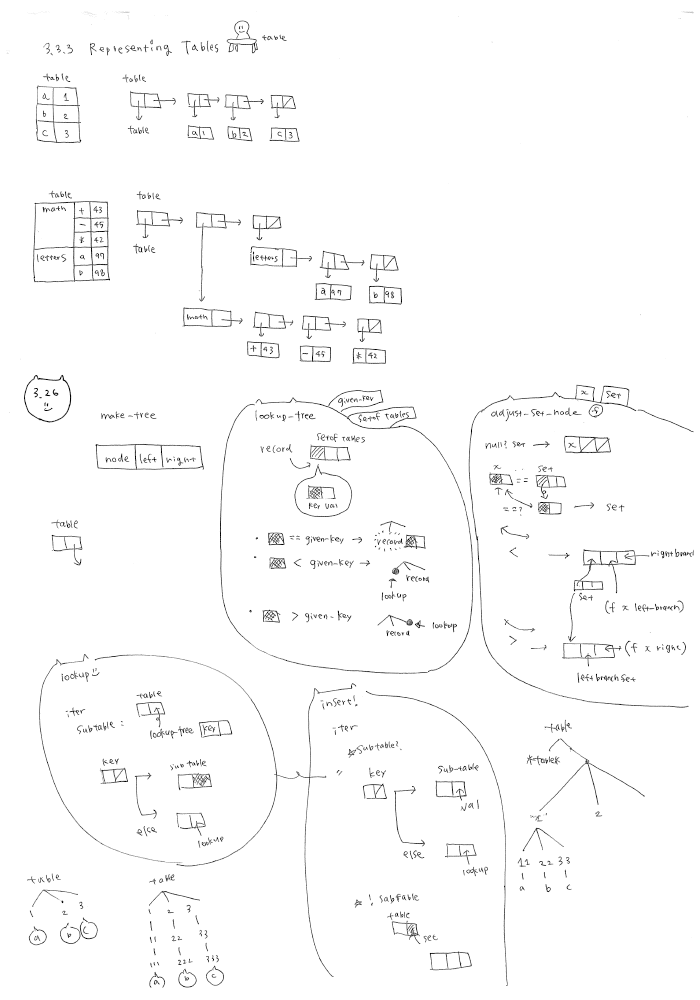 3.3.3 Representing Tables
table
table
a 1
b 2
c 3
table
table
a 1
b 2
c 3
table
math + 43
- 45
* 42
letters a 97
b 98
table
table
letters
a 97
b 98
math
+ 43
- 45
* 42
3.26
make-tree
node left right
table
given-key
set of tables
lookup-tree
set of tables
record
key val
== given-key → record
< given-key →
record
lookup
> given-key
record
lookup
x set
adjust-set-node
null? set → x
x set
==
==? → set
< → right branch
set
(f x left-branch)
x
> → (f x right)
left branch set
lookup
iter
table
subtable :
lookup-tree key
key
sub table
else
lookup
insert!
iter
*subtable?
"
key
sub-table
val
else
lookup
* ! subtable
table
set
table
*table*
"1"
2
11 22 33
a b c
table
1 2 3
a b c
table
1 2 3
11 22 33
111 222 333
a b c